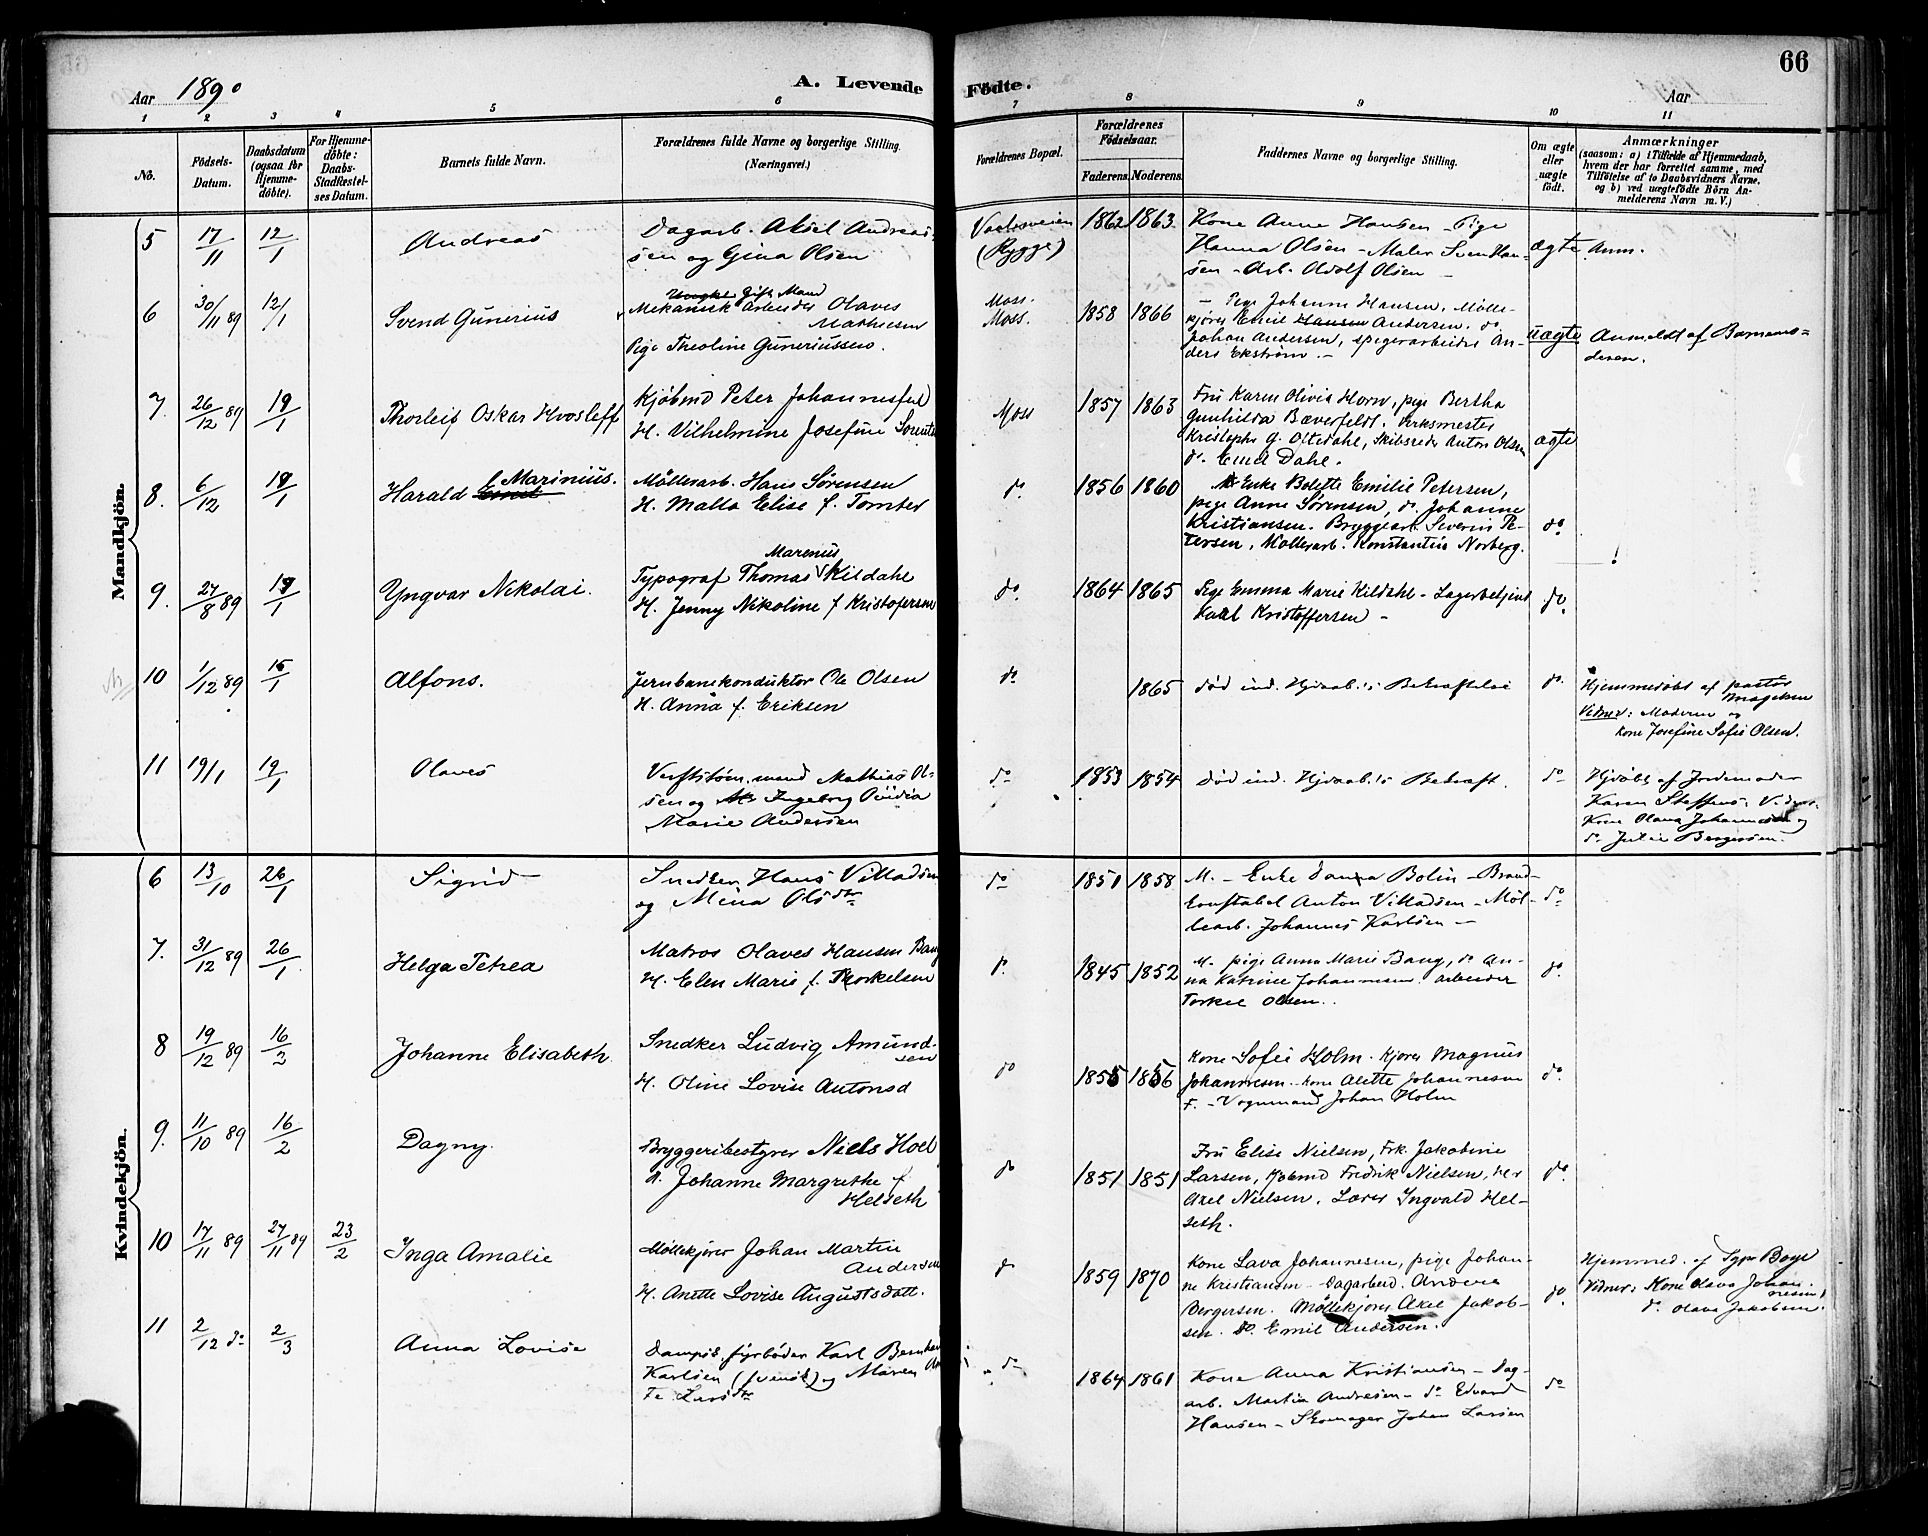 66
Aar 1890
A. Levende
Födte.
Aar
1 2 3 4 5 6 7 8 9 10 11
No.
Födsels-Datum.
Daabsdatum (ogsaa for Hjemme-döbte).
For Hjemme-döbte: Daabs-Stadfæstel-ses Datum.
Barnets fulde Navn.
Forældrenes fulde Navne og borgerlige Stilling.
(Næringsvei.)
Forældrenes Bopæl.
Forældrenes Födselsaar.
Faderens. Moderens.
Faddernes Navne og borgerlige Stilling.
Om ægte eller uægte födt.
Anmærkninger
(saasom: a) i Tilfælde af Hjemmedaab,
hvem der har forrettet samme, med
Tilföielse af to Daabsvidners Navne,
og b) ved uægtefödte Börn An-
melderens Navn m. V.)
Mandkjön.
5 17/11 12/1 Andreas
Dagarb. Aksel Andreas-
sen og Gina Olsen
(Rygge)
1862 1863
Kone Anne Hansen – Pige
Hanna Olsen – Maler Sven Han-
sen – Arb. Adolf Olsen –
ægte Anm.
6 30/11 89 12/1 Svend Gunerius
Gift Mand
Mekanisk Arbeider Olaves
Mathiesen
Pige Theoline Guneriussen.
Moss.
Moss.
1858 1866
– Pige Johanne Hansen, Mölle-
kjörer Emil Hansen Andersen. do
Johan Andersen, spigerarbeider An-
ders Ekström. –
uægte Anmeldt af Barnemo-
deren.
7. 26/12 89 19/1 Thorleif Oskar Hvosleff
Kjöbmd Peter Johannesfeld
H. Vilhelmine Josefine
Moss
1857 1863
Fru Karen Olivia Horn, pige Bertha
Gunhilda Bæverfeldt. Verksmester
Kristopher G. Oltedahl, Skibsreder Anton Olsen
do. Emil Dahl.
ægte
8. 6/12 19/1 Harald Emil Marinius.
Möllerarb. Hans Sörensen
H. Malla Elise f. Tomter
do.
1856 1860
Enke Bolette Emilie Petersen,
pige Anne Sörensen, do. Johanne
Kristiansen. Bryggearb. Severin Pe-
tersen, Möllerarb. Konstantin Norberg.
do.
9. 27/8 89 19/1 Yngvar Nikolai.
Marenius
Typograf Thomas Kildahl
H. Jenny Nikoline f. Kristofersen
do.
1864 1865
Pige Emma Marie Kildahl – Lagerbetjent
Karl Kristoffersen –
do.
10 1/12 89 15/1 Alfons.
Jernbanekonduktör Ole Olsen
H. Anna f. Eriksen
do.
1865
död ind. Hjdaab.s Bekræftelse
do.
Hjemmedöbt af pastor
Magelsen
Vidner: Moderen og
Kone Josefine Sofie Olsen.
11 19/1 19/1 Olaves
Verftstöm.mand Mathias Ol-
sen og Ingeborg
Marie Andersen
do
1853 1854
död ind. Hjdaab.s Bekræft.
do
Hjdöbt af Jordemoder
Karen Steffens: Vidner:
Kone Olava Johannesen og
do. Julie Bergersen.
Kvindekjön.
6 13/10 26/1 Sigrid
Snedker Hans Villadsen
og Mina Olsdtr
do
1851 1858
M. – Enke Danra Bolin – Brand-
konstabel Anton Villadsen – Möl-
learb. Johannes Karlsen –
do
7. 31/12 89 26/1 Helga Petrea
Matros Olaves Hansen Bang
H. Elen Marie f. Thorkelsen
1845 1852
M. pige Anna Marie Bang, do An-
na Katrine Johannesen. arbeider
Torkel Olsen..
do.
8 19/12 89 16/3 Johanne Elisabeth.
Snedker Ludvig Amund-
sen
H. Oline Lovise Antonsd
do
1855 1856
Kone Sofie Holm. kjörer Magnus
Johannesen. – kone Alette Johannesen
F. – Vognmand Johan Holm
do.
9. 11/10 89 16/2 Dagny.
Bryggeribestyrer Niels Holl
H. Johanne Margrethe f
Helseth
do
1851 1851
Fru Elise Nielsen, Frk. Jakobine
Larsen, Kjöbmd Fredrik Nielsen, Her
Axel Nielsen. Lærer Ingvald Hel-
seth.
do.
10 17/11 89 27/11 89 23/2 Inga Amalie
Möllekjörer Johan Martin
Andersen
H. Anette Lovise Augustsdatt.
do
1859 1870
Kone Lava Johannesen, pige Johan-
ne Kristiansen – Dagarbeid. Andreas
Bergersen. Möllekjörer Axel Jakob-
sen. Do. Emil Andersen.
do.
Hjemmed. af Boye
Vidner: Kone Olava Johan-
nesen,
do. Olava Jakobsen.
11 2/12 do 2/3 Anna Lovise
Dampsk.fyrböder Karl Bernhard
Karlsen (svensk) og Maren An-
te Larsdtr
do
1864 1861
Kone Anna Kristiansen – Dag-
arb. Martin Andresen – do Edvard
Hansen – Skomager Johan Larsen
do